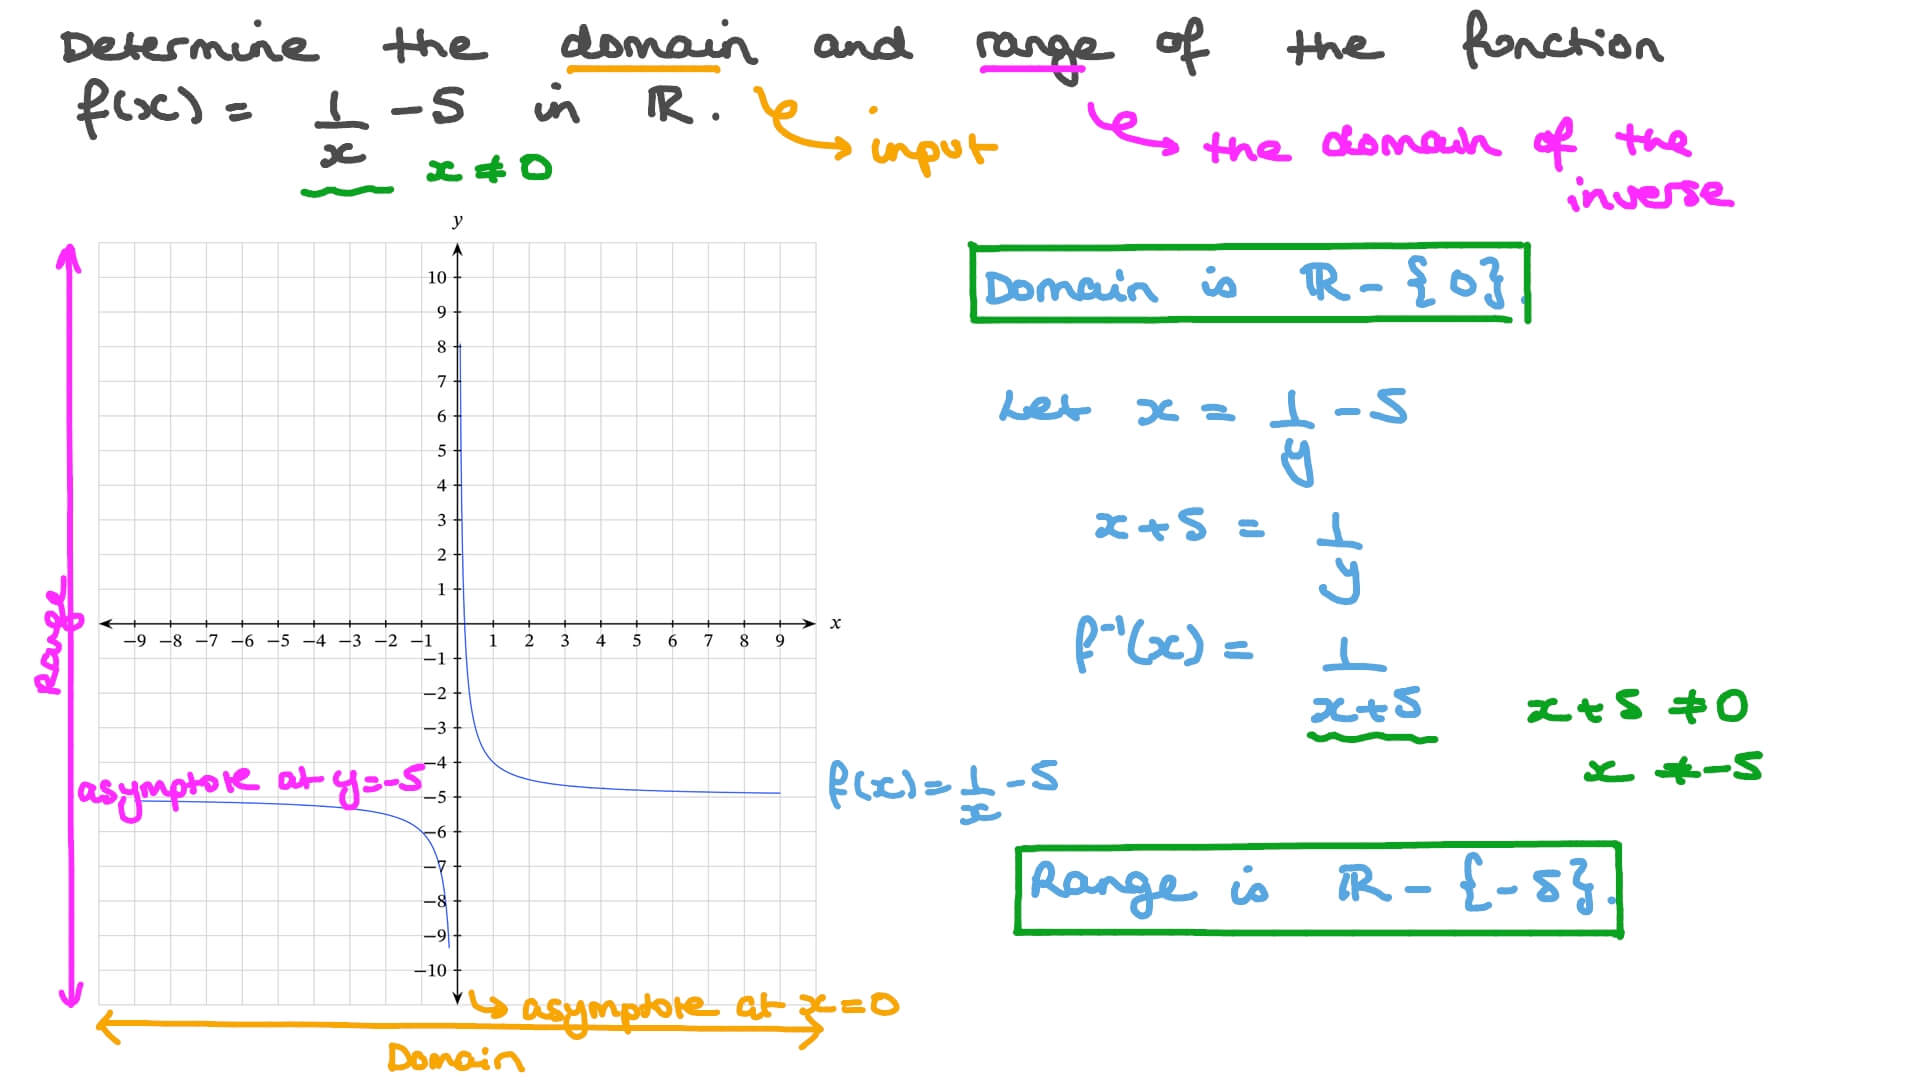 Determine the domain and range of the function
f(x) = 1/x - 5 in ℝ.
input
the domain of the
inverse
x ≠ 0
y
10
9
8
7
6
5
4
3
2
1
−9 −8 −7 −6 −5 −4 −3 −2 −1 1 2 3 4 5 6 7 8 9 x
−1
−2
−3
−4
−5
−6
−7
−8
−9
−10
Range
asymptote at y=-5
f(x)=1/x-5
asymptote at x=0
Domain
Domain is ℝ - {0}.
Let x = 1/y - 5
x+5 = 1/y
f⁻¹(x) = 1/(x+5)
x+5 ≠ 0
x ≠ -5
Range is ℝ - {-5}.